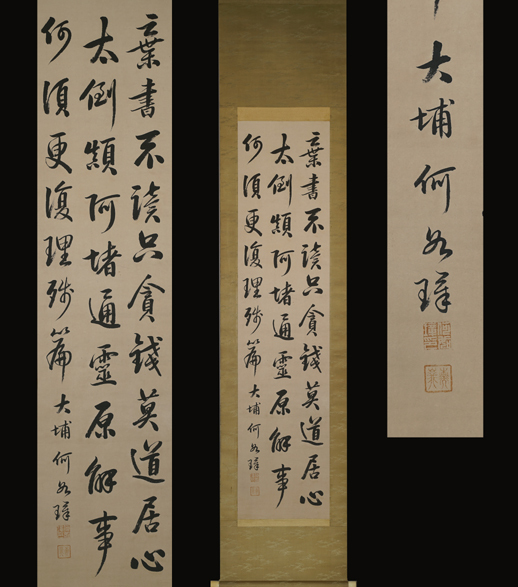 葉書不讀只貪錢莫道居心
太倒顛阿堵通靈原解事
何須更復理殘篇 大埔何如璋
葉書不讀只貪錢莫道居心
太倒顛阿堵通靈原解事
何須更復理殘篇 大埔何如璋
大埔何如璋